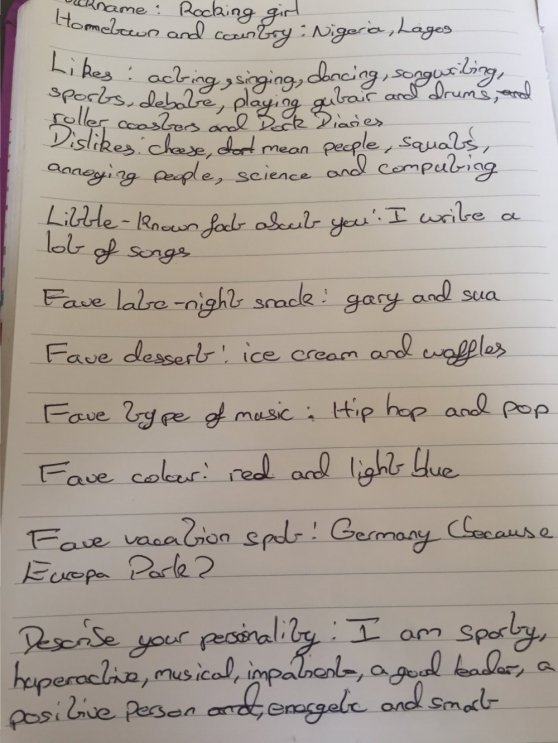 Nickname: Rocking girl
Hometown and country: Nigeria, Lagos
Likes: acting, singing, dancing, songwriting,
sports, debate, playing guitar and drums, and
roller coasters and Dork Diaries
Dislikes: cheese, dont mean people, squats,
annoying people, science and computing
Little-known fact about you: I write a
lot of songs
Fave late-night snack: gary and sua
Fave dessert: ice cream and waffles
Fave type of music: Hip hop and pop
Fave colour: red and light blue
Fave vacation spot: Germany (because
Europa Park?
Describe your personality: I am sporty,
hyperactive, musical, impatient, a good leader, a
positive person and, energetic and smart